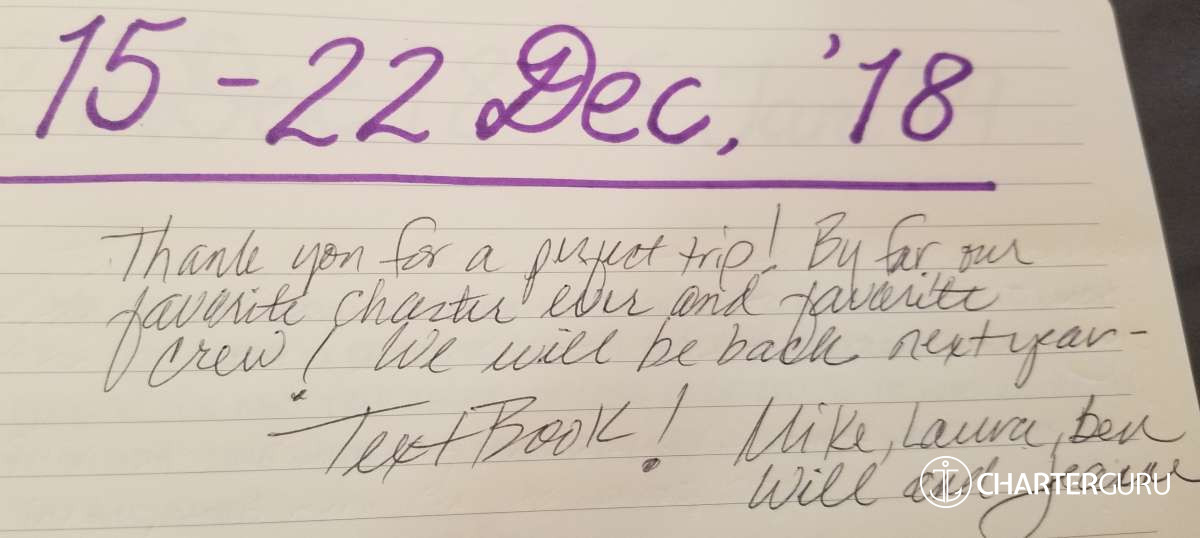 15-22 Dec, '18
Thank you for a perfect trip! By far our
favorite charter ever and favorite
crew! We will be back next year-
TextBook! Mike, Laura, Ben
Will and
CHARTERGURU